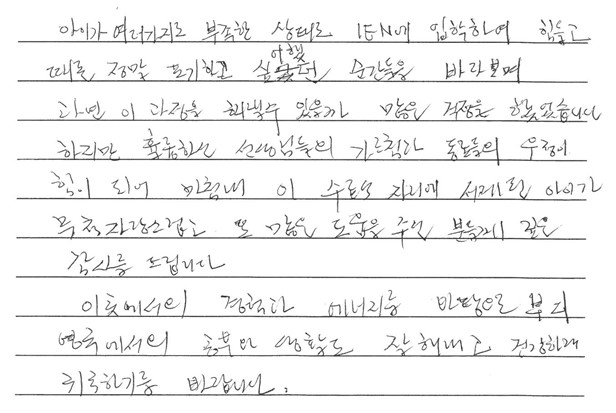 아이가 여러가지로 부족한 상태로 IEN에 입학하여 힘들고
때론 정말 포기하고 싶어했던 순간들을 바라보며
과연 이 과정을 해낼수 있을까 많은 걱정을 했었습니다
하지만 훌륭하신 선생님들의 가르침과 동료들의 우정이
힘이 되어 마침내 이 수료식 자리에 서게 된 아이가
무척 자랑스럽고 또 많은 도움을 주신 분들께 깊은
감사를 드립니다
이곳에서의 경험과 에너지를 바탕으로 부디
영국에서의 공부와 생활도 잘 해내고 건강하게
귀국하기를 바랍니다.